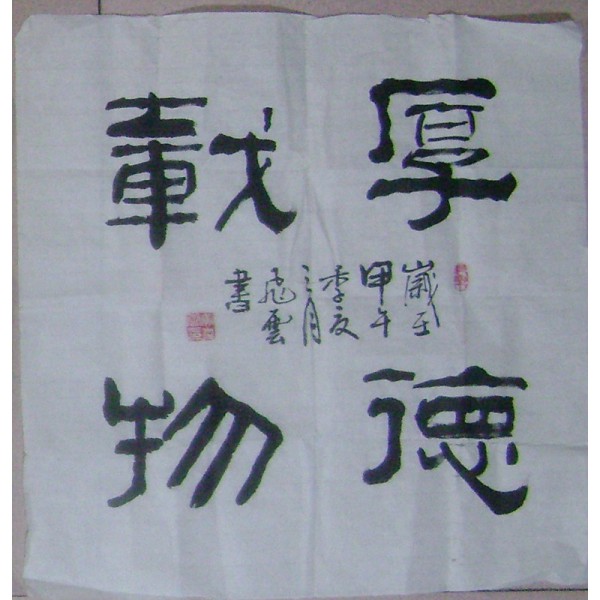 厚德
載物
歲在
甲午
季夏
之月
飛雲
書